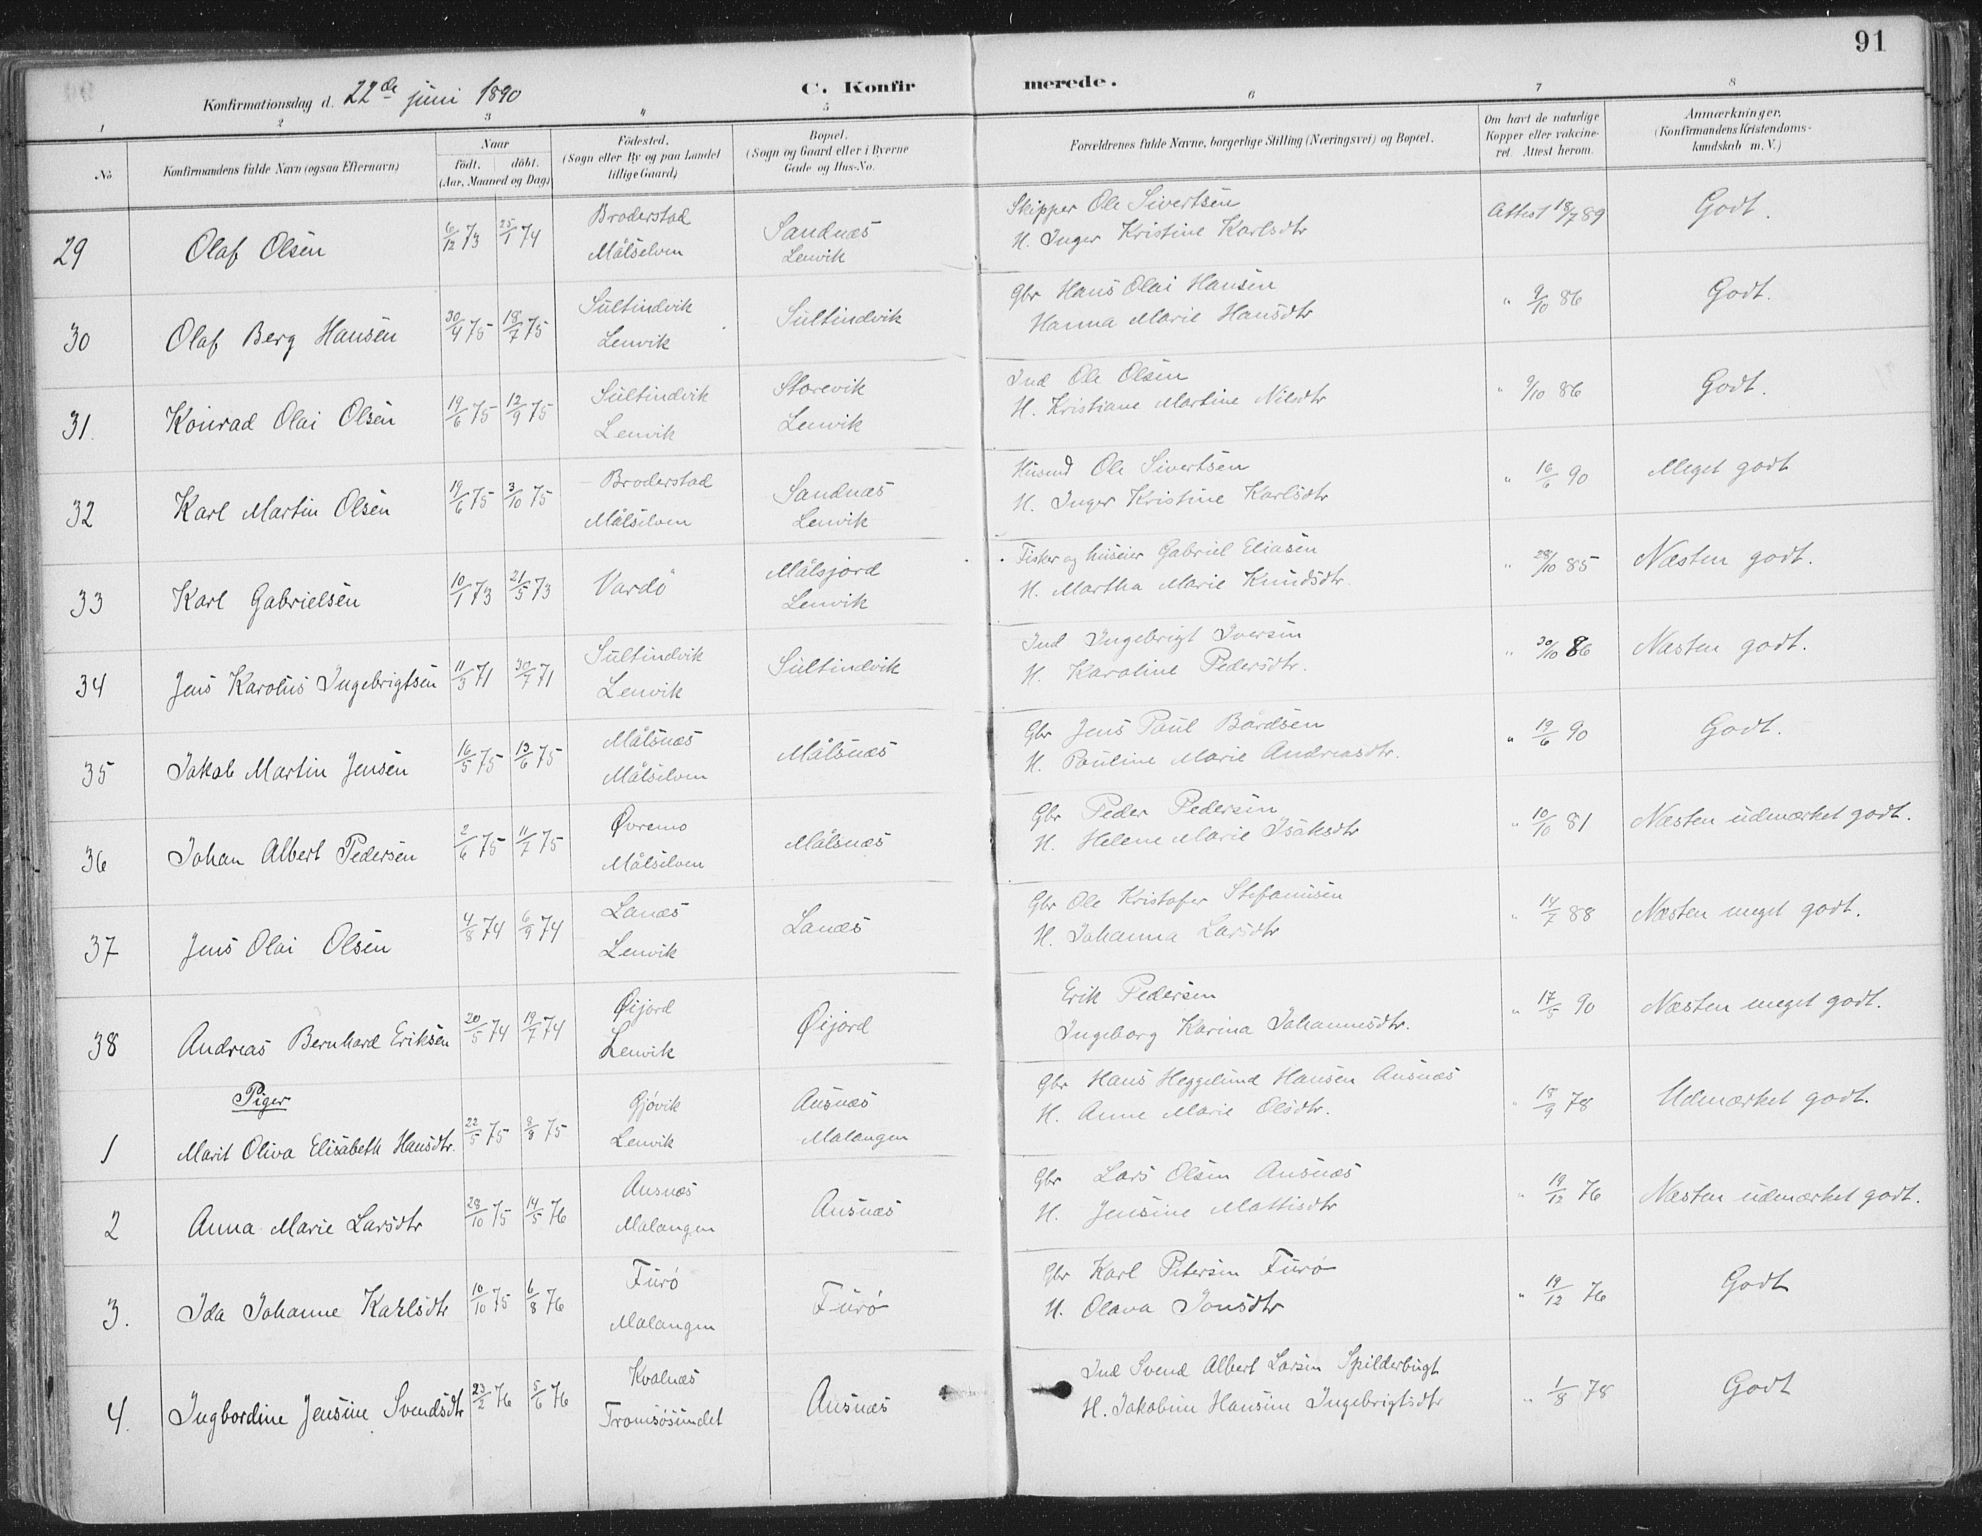 91
Konfirmationsdag d. 22de juni 1890
C. Konfirmerede.
1 2 3 4 5 6 7 8
No
Konfirmandens fulde Navn (ogsaa Efternavn)
Naar
født. døbt.
(Aar, Maaned og Dag)
Fødested.
(Sogn eller By og paa Landet
tillige Gaard)
Bopæl.
(Sogn og Gaard eller i Byerne
Gade og Hus-No.
Forældrenes fulde Navne, borgerlige Stilling (Næringsvei) og Bopæl.
Om havt de naturlige
Kopper eller vakcine-
ret. Attest herom.
Anmærkninger.
(Konfirmandens Kristendoms-
kundskab m. V.)
29 Olaf Olsen 6/12 73 25/1 74 Broderstad Målselven Sandnæs Lenvik Skipper Ole Sivertsen H. Inger Kristine Karlsdtr Attest 18/7 89 Godt.
30 Olaf Berg Hansen 30/4 75 18/7 75 Sultindvik Lenvik Sultindvik Gbr Hans Olai Hansen Hanna Marie Hansdtr " 9/10 86 Godt.
31. Konrad Olai Olsen 19/6 75 12/9 75 Sultindvik Lenvik Storevik Lenvik Ind Ole Olsen H. Kristiane Martine Nilsdtr " 9/10 86 Godt.
32 Karl Martin Olsen 19/6 75 3/10 75 Broderstad Målselven Sandnæs Lenvik Husmd Ole Sivertsen H. Inger Kristine Karlsdtr " 16/6 90 Meget godt
33 Karl Gabrielsen 10/1 73 21/5 73 Vardö Målsjord Lenvik Fisker og huseier Gabriel Eliasen H. Martha Marie Knudsdtr. " 28/10 85 Næsten godt.
34 Jens Karolus Ingebrigtsen 11/3 71 30/7 71 Sultindvik Lenvik Sultindvik Ind Ingebrigt Iversen H. Karoline Pedersdtr. " 30/10 86 Næsten godt.
35 Jakob Martin Jensen 16/5 75 13/6 75 Målsnæs Målselven Målsnæs Gbr Jens Paul Bårdsen H. Pauline Marie Andreasdtr. " 19/6 90 Godt.
36 Johan Albert Pedersen 2/6 75 11/7 75 Øvremo Målselven Målsnæs Gbr Peder Pedersen H. Helene Marie Isaksdtr " 10/10 81 Næsten udmærket godt.
37 Jens Olai Olsen 4/8 74 6/9 74 Lanæs Lenvik Lanæs Gbr Ole Kristofer Stefanusen H. Johanna Larsdtr " 14/7 88 Næsten meget godt.
38 Andreas Bernhard Eriksen 20/5 74 19/7 74 Øijord Lenvik Øijord Erik Pedersen Ingeborg Karina Johannesdtr. " 17/5 90 Næsten meget godt.
Piger
1 Marit Oliva Elisabeth Hansdtr. 22/5 75 8/8 75 Gjövik Lenvik Ansnæs Malangen Gbr Hans Heggelund Hansen Ansnæs H. Anne Marie Olsdtr. " 18/9 78 Udmærket godt.
2 Anna Marie Larsdtr 28/10 75 14/5 76 Ansnæs Malangen Ansnæs Gbr Lars Olsen Ansnæs H. Jensine Mattisdtr " 19/12 76 Næsten udmærket godt.
3. Ida Johanne Karlsdtr 10/10 75 6/8 76 Furø Malangen Furø Gbr Karl Petersen Furø H. Olava Jonsdtr " 19/12 76 Godt
4. Ingbordine Jensine Svendsdtr 23/2 76 5/6 76 Kvalnæs Tromsøsundet Ansnæs Ind Svend Albert Larsen Spilderbugt H. Jakobine Hansine Ingebrigtsdtr " 1/8 78 Godt